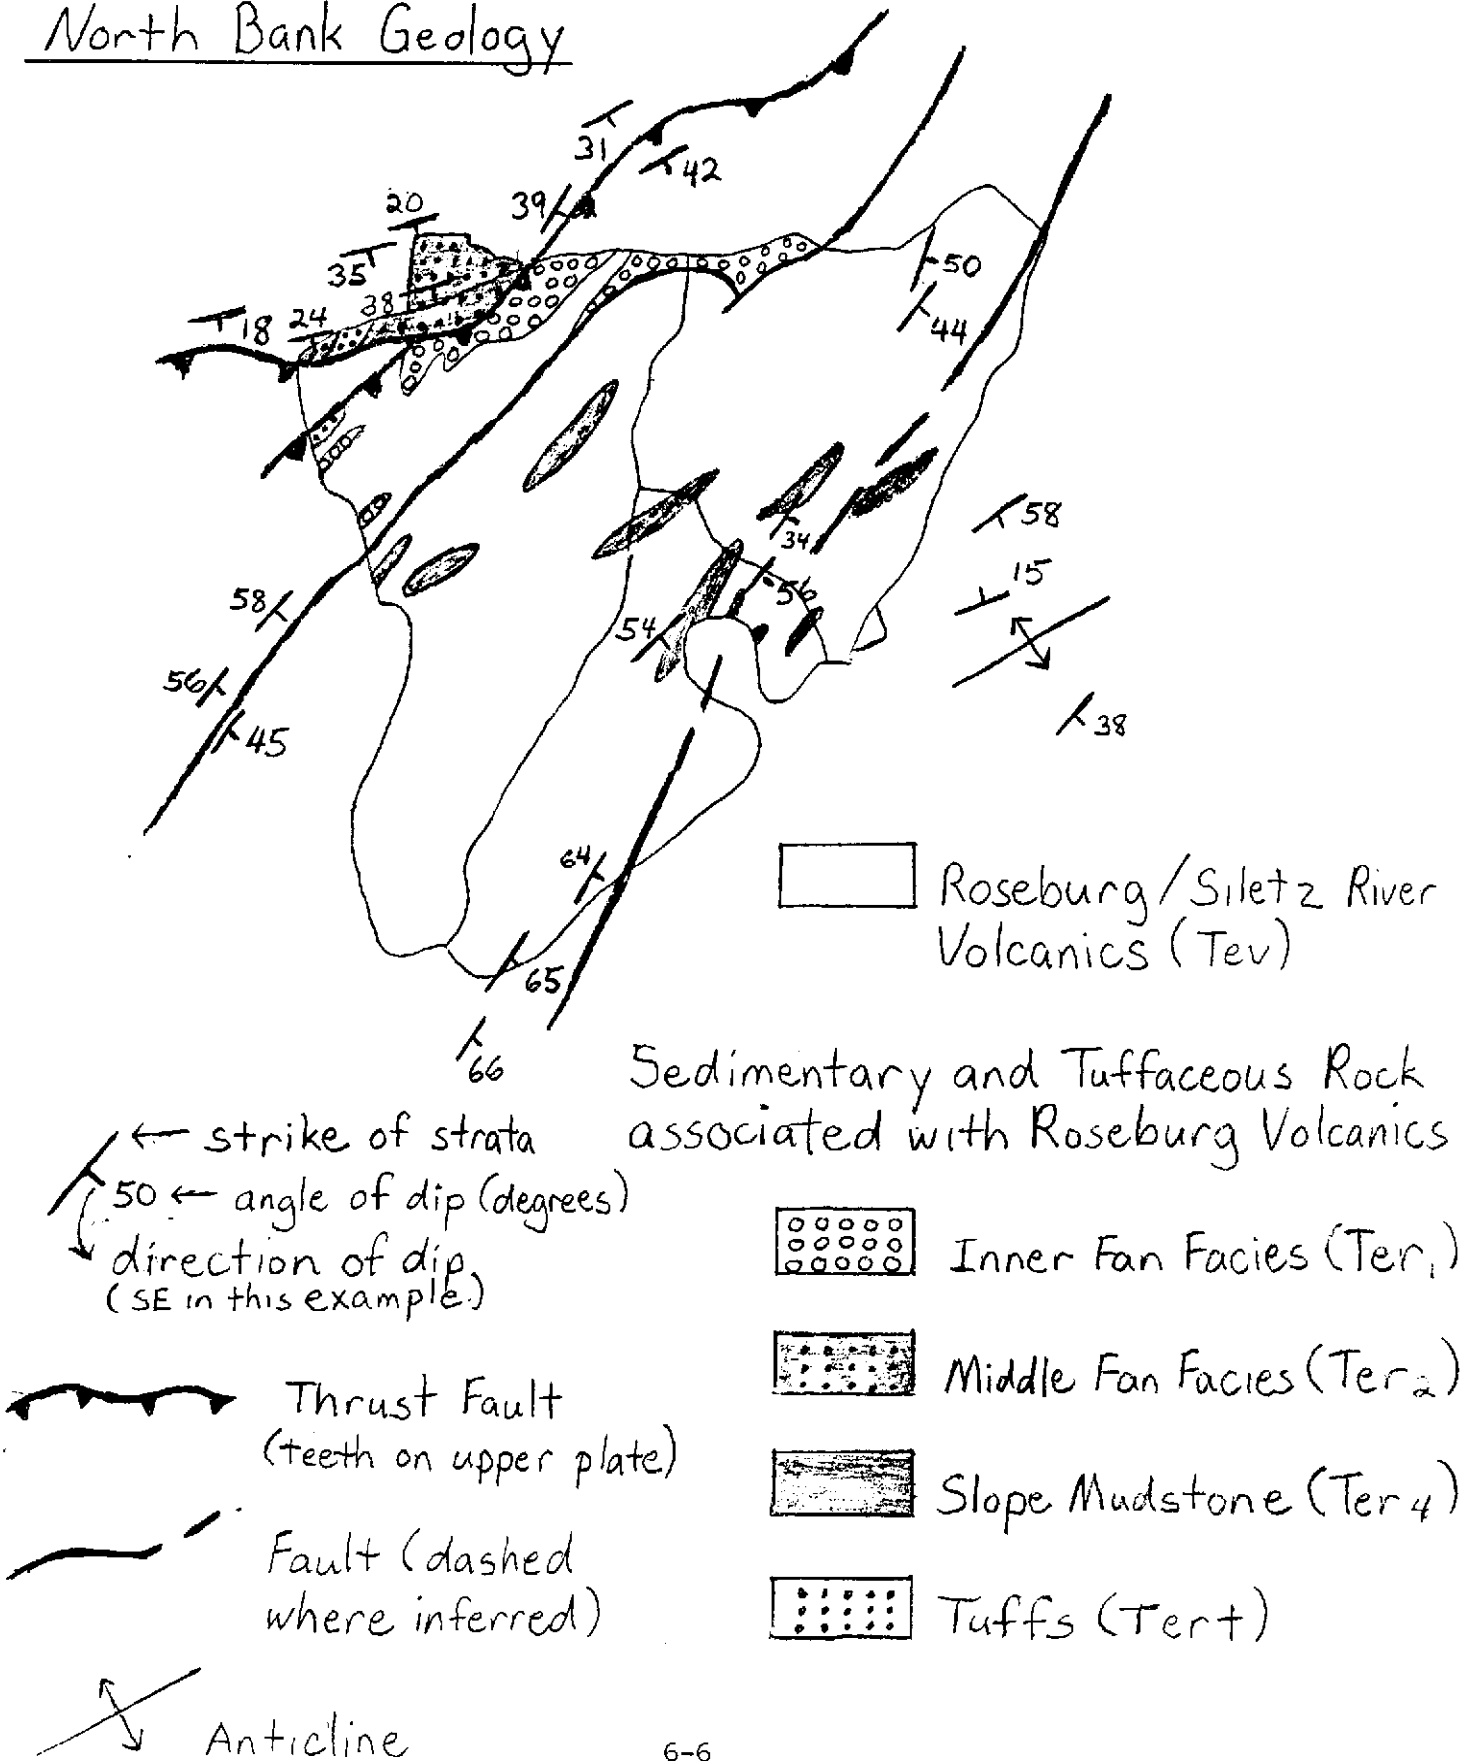 North Bank Geology
31
42
39
20
35
38
18
24
50
44
58
34
15
56
58
54
56
38
45
64
65
66
Roseburg/Siletz River
Volcanics (Tev)
Sedimentary and Tuffaceous Rock
associated with Roseburg Volcanics
← strike of strata
50 ← angle of dip (degrees)
direction of dip
(SE in this example.)
Inner Fan Facies (Ter1)
Middle Fan Facies (Ter2)
Thrust Fault
(teeth on upper plate)
Slope Mudstone (Ter4)
Fault (dashed
where inferred)
Tuffs (Tert)
Anticline
6-6